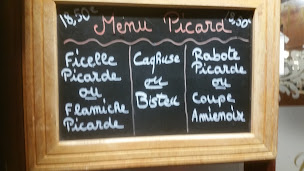 18,50€
Menu Picard
18,50€
Ficelle
Picarde
ou
Flamiche
Picarde
Caqhuse
ou
Bisteu
Rabote
Picarde
ou
Coupe
Amienoise